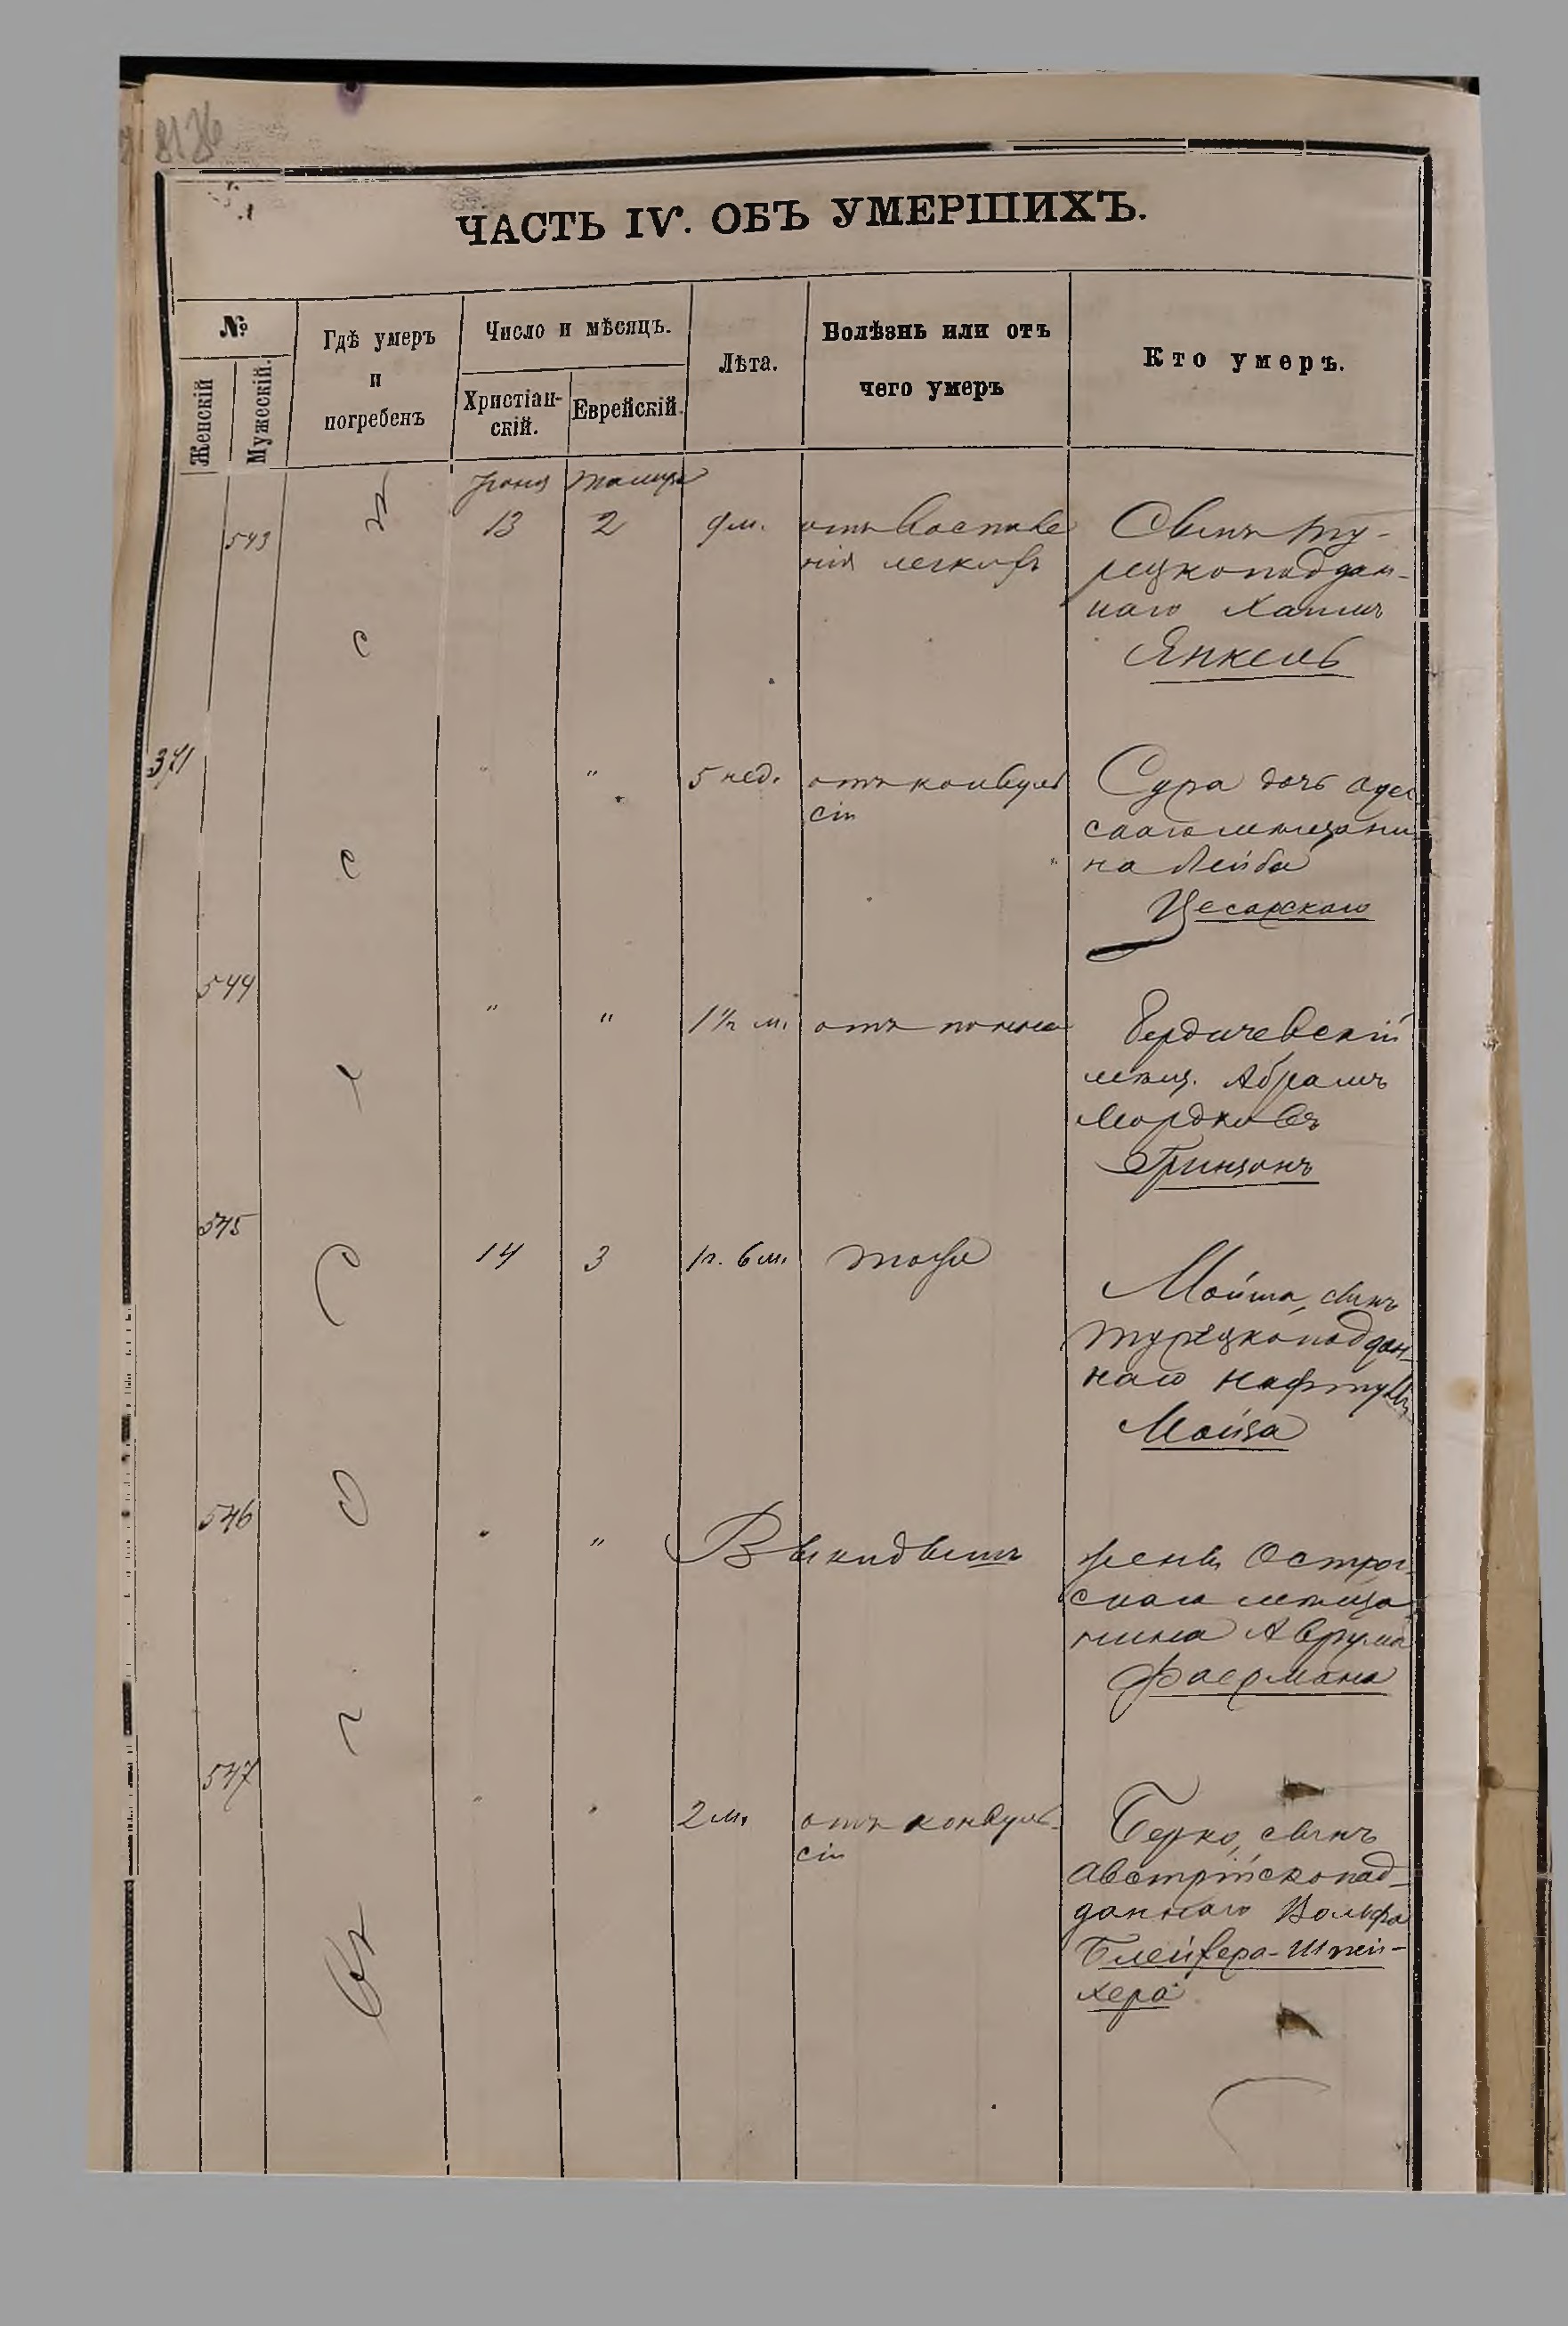 8126
ЧАСТЬ IV. ОБЪ УМЕРШИХЪ.
№
Женскій
Мужескій.
Гдѣ умеръ
и
погребенъ
Число и мѣсяцъ.
Христіан-
скій.
Еврейскій.
Лѣта.
Болѣзнь или отъ
чего умеръ
Кто умеръ.
Іюня Тамуза
543 13 2 9 м. отъ Воспале
нія легкихъ
Сынъ ту-
рецкоподдан-
наго Хаимъ
Янкель
371 " " 5 нед. отъ конвуль
сіи
Сура дочь Одес
скаго мѣщани
на Лейба
Цесарскаго
544 " " 1½ м. отъ поноса
Бердичевскій
мѣщ. Абрамъ
Мордковъ
Гринцонъ
545 14 3 1 г. 6 м. тоже
Мойша, сынъ
турецкоподдан-
наго Нафтулы
Мойза
546 " " Выкидышъ
жены Острог-
скаго мѣща
нина Аврума
Фаермана
547 " " 2 м. отъ конвуль-
сіи
Берко, сынъ
Австрійскопод-
даннаго Вольфа
Блейфера-Шпей-
хера